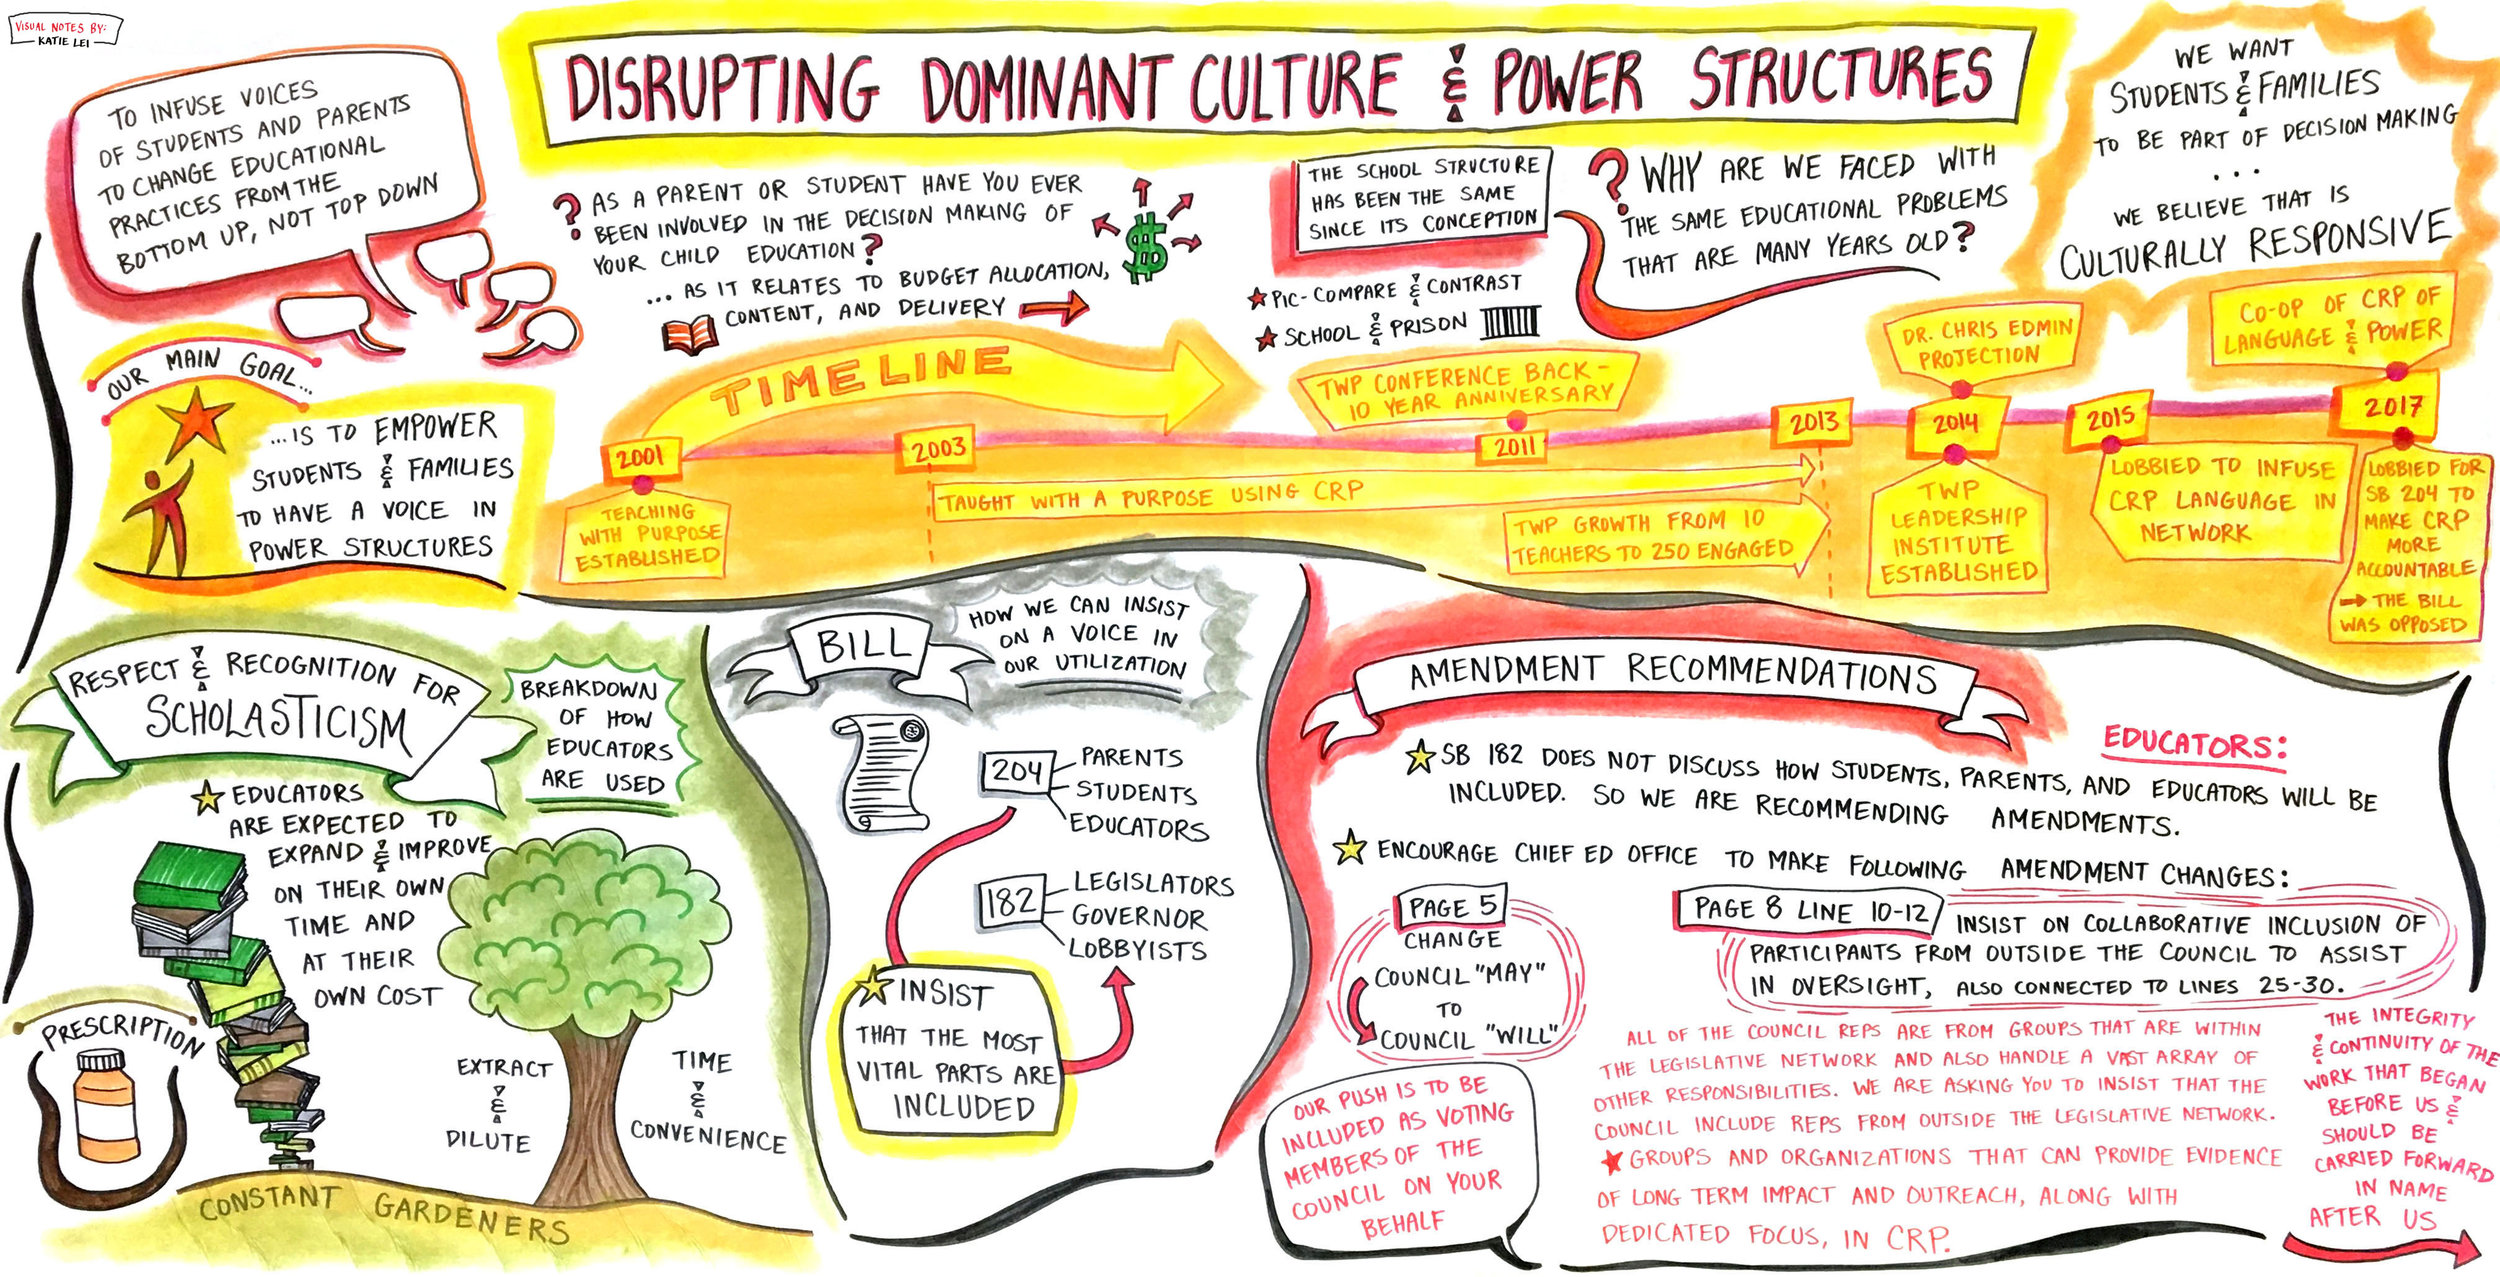 VISUAL NOTES BY:
KATIE LEI
DISRUPTING DOMINANT CULTURE & POWER STRUCTURES
TO INFUSE VOICES
OF STUDENTS AND PARENTS
TO CHANGE EDUCATIONAL
PRACTICES FROM THE
BOTTOM UP, NOT TOP DOWN
? AS A PARENT OR STUDENT HAVE YOU EVER
BEEN INVOLVED IN THE DECISION MAKING OF
YOUR CHILD EDUCATION?
... AS IT RELATES TO BUDGET ALLOCATION,
CONTENT, AND DELIVERY
$
THE SCHOOL STRUCTURE
HAS BEEN THE SAME
SINCE ITS CONCEPTION
PIC- COMPARE & CONTRAST
SCHOOL & PRISON
? WHY ARE WE FACED WITH
THE SAME EDUCATIONAL PROBLEMS
THAT ARE MANY YEARS OLD?
WE WANT
STUDENTS & FAMILIES
TO BE PART OF DECISION MAKING
...
WE BELIEVE THAT IS
CULTURALLY RESPONSIVE
OUR MAIN GOAL...
...IS TO EMPOWER
STUDENTS & FAMILIES
TO HAVE A VOICE IN
POWER STRUCTURES
TIMELINE
2001
TEACHING
WITH PURPOSE
ESTABLISHED
2003
TAUGHT WITH A PURPOSE USING CRP
TWP CONFERENCE BACK-
10 YEAR ANNIVERSARY
2011
TWP GROWTH FROM 10
TEACHERS TO 250 ENGAGED
2013
DR. CHRIS EDMIN
PROJECTION
2014
TWP
LEADERSHIP
INSTITUTE
ESTABLISHED
2015
LOBBIED TO INFUSE
CRP LANGUAGE IN
NETWORK
CO-OP OF CRP OF
LANGUAGE & POWER
2017
LOBBIED FOR
SB 204 TO
MAKE CRP
MORE
ACCOUNTABLE
THE BILL
WAS OPPOSED
RESPECT & RECOGNITION FOR
SCHOLASTICISM
BREAKDOWN
OF HOW
EDUCATORS
ARE USED
EDUCATORS
ARE EXPECTED TO
EXPAND & IMPROVE
ON THEIR OWN
TIME AND
AT THEIR
OWN COST
PRESCRIPTION
EXTRACT
&
DILUTE
TIME
&
CONVENIENCE
CONSTANT GARDENERS
BILL
HOW WE CAN INSIST
ON A VOICE IN
OUR UTILIZATION
204
PARENTS
STUDENTS
EDUCATORS
182
LEGISLATORS
GOVERNOR
LOBBYISTS
INSIST
THAT THE MOST
VITAL PARTS ARE
INCLUDED
AMENDMENT RECOMMENDATIONS
EDUCATORS:
SB 182 DOES NOT DISCUSS HOW STUDENTS, PARENTS, AND EDUCATORS WILL BE
INCLUDED. SO WE ARE RECOMMENDING AMENDMENTS.
ENCOURAGE CHIEF ED OFFICE TO MAKE FOLLOWING AMENDMENT CHANGES:
PAGE 5
CHANGE
COUNCIL "MAY"
TO
COUNCIL "WILL"
PAGE 8 LINE 10-12 INSIST ON COLLABORATIVE INCLUSION OF
PARTICIPANTS FROM OUTSIDE THE COUNCIL TO ASSIST
IN OVERSIGHT, ALSO CONNECTED TO LINES 25-30.
OUR PUSH IS TO BE
INCLUDED AS VOTING
MEMBERS OF THE
COUNCIL ON YOUR
BEHALF
ALL OF THE COUNCIL REPS ARE FROM GROUPS THAT ARE WITHIN
THE LEGISLATIVE NETWORK AND ALSO HANDLE A VAST ARRAY OF
OTHER RESPONSIBILITIES. WE ARE ASKING YOU TO INSIST THAT THE
COUNCIL INCLUDE REPS FROM OUTSIDE THE LEGISLATIVE NETWORK.
GROUPS AND ORGANIZATIONS THAT CAN PROVIDE EVIDENCE
OF LONG TERM IMPACT AND OUTREACH, ALONG WITH
DEDICATED FOCUS, IN CRP.
THE INTEGRITY
& CONTINUITY OF THE
WORK THAT BEGAN
BEFORE US &
SHOULD BE
CARRIED FORWARD
IN NAME
AFTER US